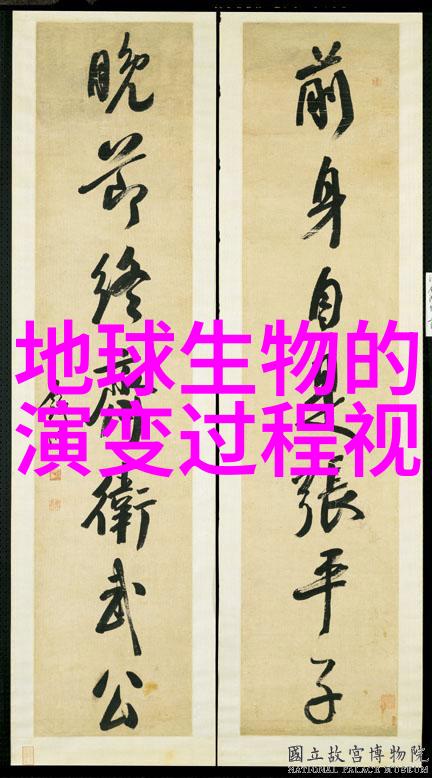 前身自是張平子
晚節終歸衛武公
地球生物的
演变过程视
國立故宮博物院
NATIONAL PALACE MUSEUM